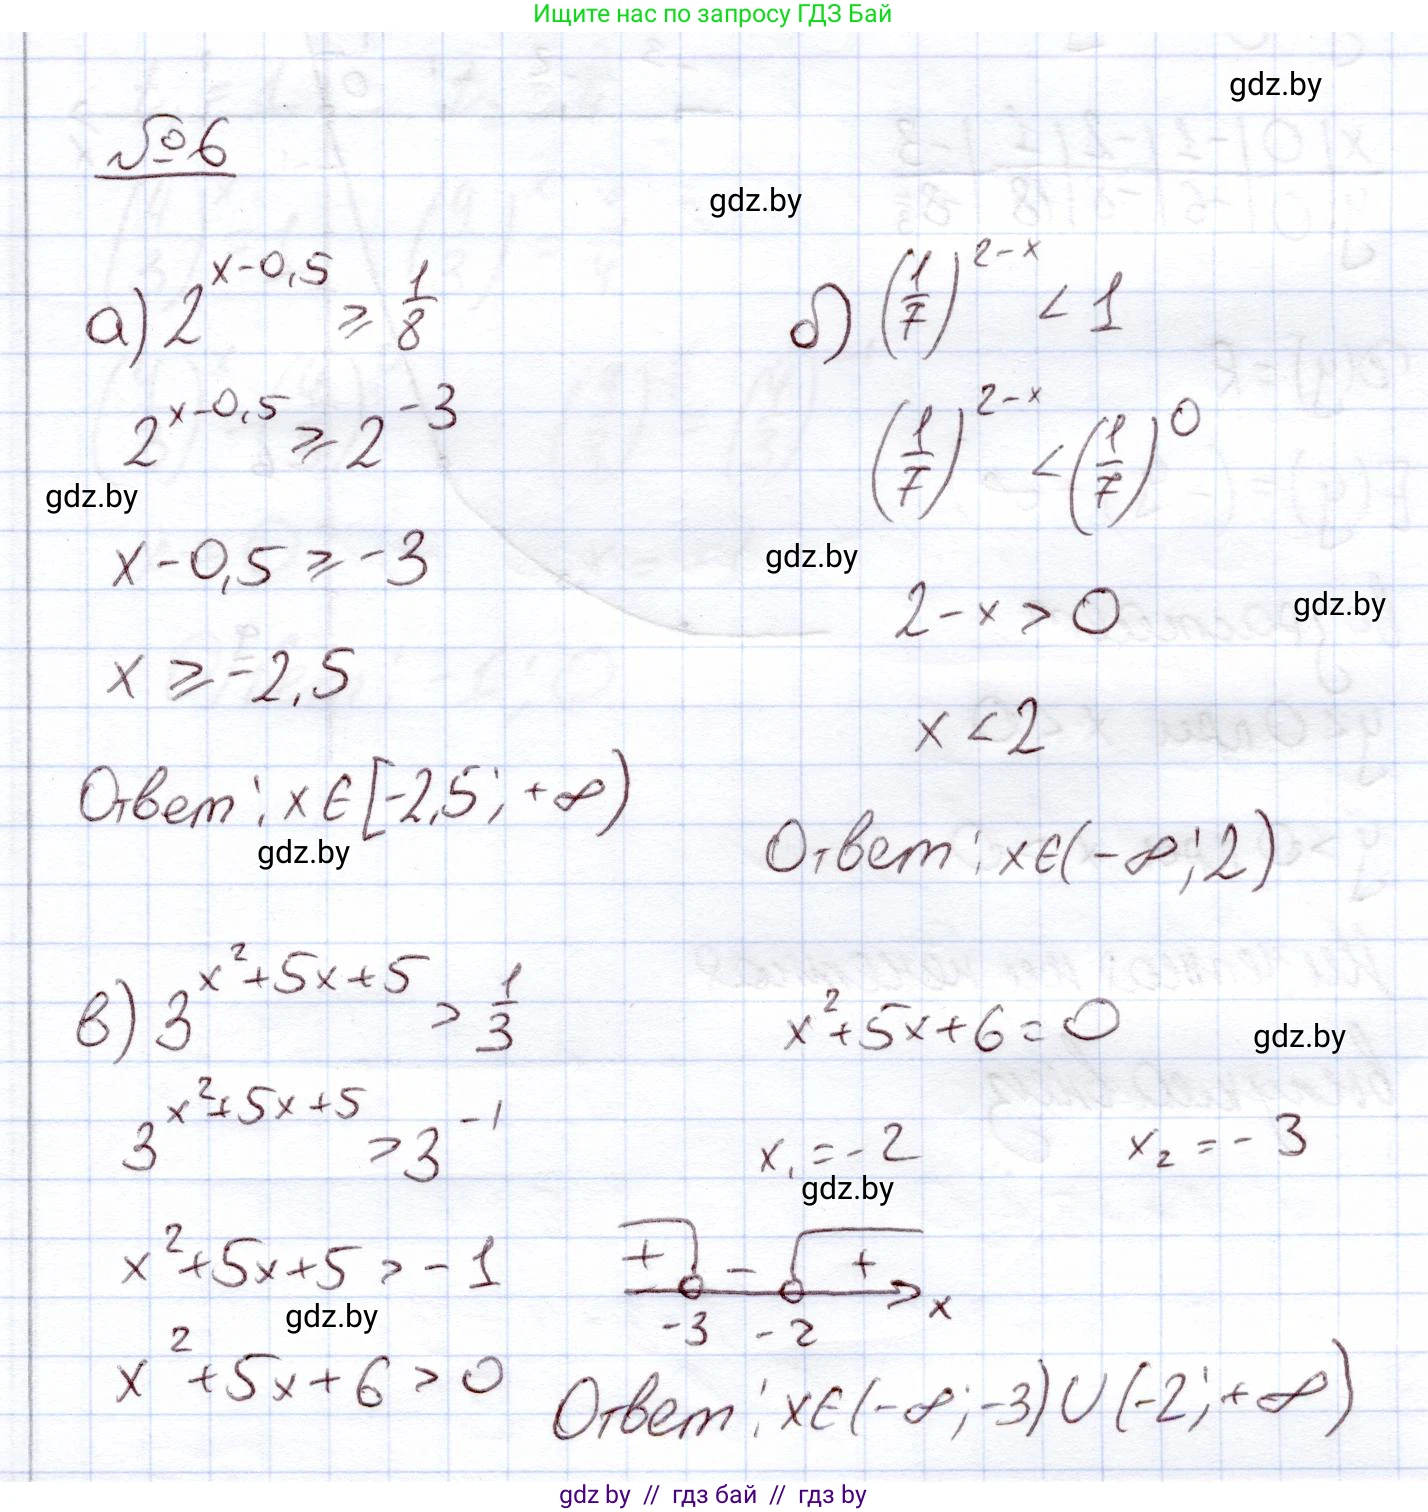 Ищите нас по запросу ГДЗ Бай
gdz.by
№6
gdz.by
а) 2^{x-0,5} ≥ 1/8
2^{x-0,5} ≥ 2^{-3}
gdz.by
x-0,5 ≥ -3
x ≥ -2,5
Ответ: x∈[-2,5; +∞)
gdz.by
б) (1/7)^{2-x} < 1
(1/7)^{2-x} < (1/7)^0
gdz.by
2-x > 0
gdz.by
x < 2
Ответ: x∈(-∞; 2)
в) 3^{x²+5x+5} > 1/3
3^{x²+5x+5} > 3^{-1}
x²+5x+5 > -1
gdz.by
x²+5x+6 > 0
x²+5x+6 = 0
gdz.by
x₁ = -2 x₂ = -3
gdz.by
+ - +
-3 -2 x
Ответ: x∈(-∞; -3)∪(-2; +∞)
gdz by // гдз бай // гдз by